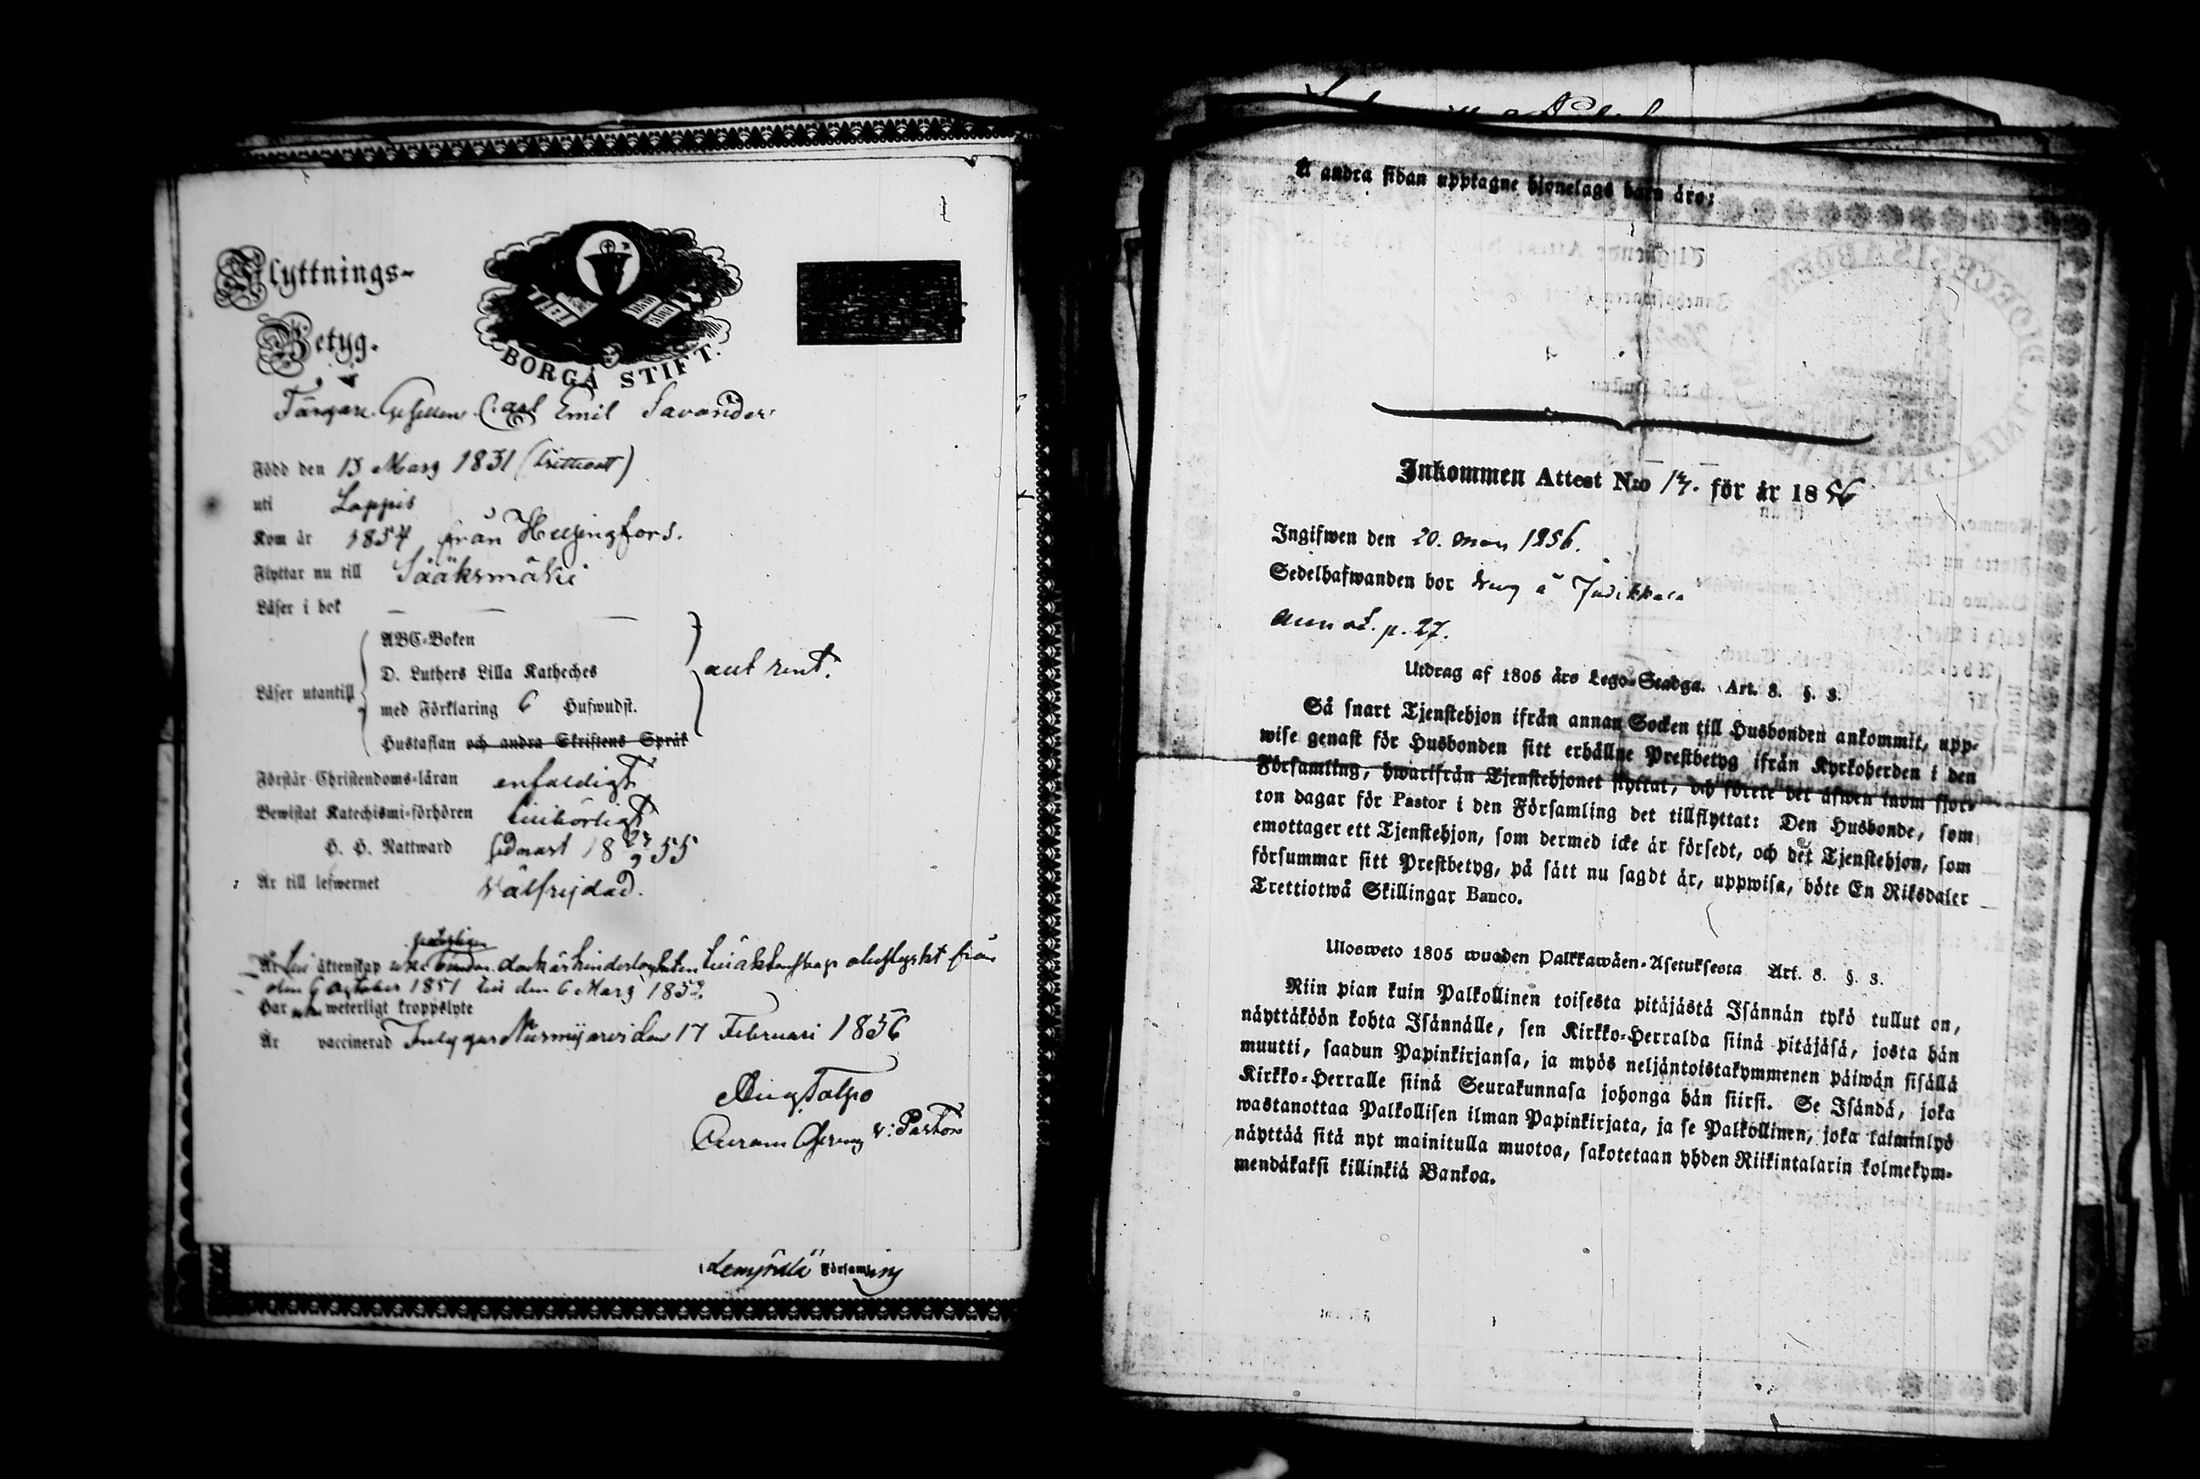 Flyttnings-
Betyg.
BORGÅ STIFT.
Färgare Gesellen Carl Emil Savander
Född den 13 Mars 1831 (trettioett)
uti Loppis
Kom år 1854 från Helsingfors.
Flyttar nu till Sääksmäki
Läser i bok — — —
Läser utantill
ABC-Boken
D. Luthers Lilla Katheches
med Förklaring 6 Hufwudst.
Hustaflan och andra Skriftens Språk
allt rent.
Förstår Christendoms-läran enfaldigt
Bewistat Katechismi-förhören tillbörligt
H. H. Nattward sednast 18 23/9 55
Är till lefwernet välfrejdad.
Är till äktenskap dock är hindersløsheten till äktenskap obestyrkt från
den 6 October 1851 till den 6 Mars 1852.
Har weterligt kroppslyte
Är vaccinerad Intygar Nurmijärvi den 17 Februari 1856
Aug Talpo
v: Pastor
Församling
Å andra sidan upptagne hjonelags barn äro:
Inkommen Attest N:o 17. för år 1856
Ingifwen den 20. Mars 1856.
Sedelhafwanden bor
p. 27.
Utdrag af 1805 års Lego-Stadga. Art. 8. §. 3.
Så snart Tjenstehjon ifrån annan Socken till Husbonden ankommit, upp-
wise genast för Husbonden sitt erhållne Prestbetyg ifrån Kyrkoherden i den
Församling, hwarifrån Tjenstehjonet flyttat, och förete det äfwen inom fjor-
ton dagar för Pastor i den Församling det tillflyttat: Den Husbonde, som
emottager ett Tjenstehjon, som dermed icke är försedt, och det Tjenstehjon, som
försummar sitt Prestbetyg, på sätt nu sagdt är, uppwisa, böte En Riksdaler
Trettiotwå Skillingar Banco.
Ulosweto 1805 wuoden Palkkawäen-Asetuksesta Art. 8. §. 3.
Niin pian kuin Palkollinen toisesta pitäjästä Isännän tykö tullut on,
näyttäköön kohta Isännälle, sen Kirkko-Herralda siinä pitäjäsä, josta hän
muutti, saadun Papinkirjansa, ja myös neljäntoistakymmenen päiwän sisällä
Kirkko-Herralle siinä Seurakunnasa johonga hän siirsi. Se Isändä, joka
wastanottaa Palkollisen ilman Papinkirjata, ja se Palkollinen, joka laiminlyö
näyttää sitä nyt mainitulla muotoa, sakotetaan yhden Riikintalarin kolmekym-
mendäkaksi killinkiä Bankoa.